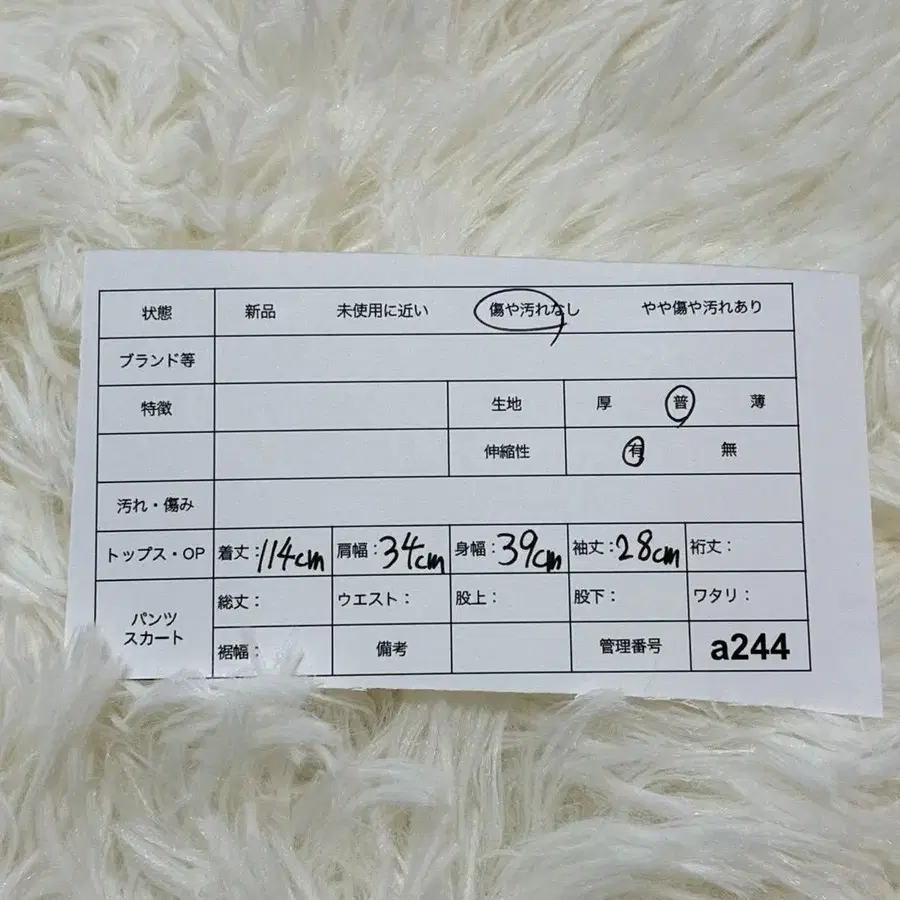 状態 新品 未使用に近い 傷や汚れなし やや傷や汚れあり
ブランド等
特徴 生地 厚 普 薄
伸縮性 有 無
汚れ・傷み
トップス・OP 着丈:114cm 肩幅:34cm 身幅:39cm 袖丈:28cm 裄丈:
パンツ スカート 総丈: ウエスト: 股上: 股下: ワタリ:
裾幅: 備考 管理番号 a244